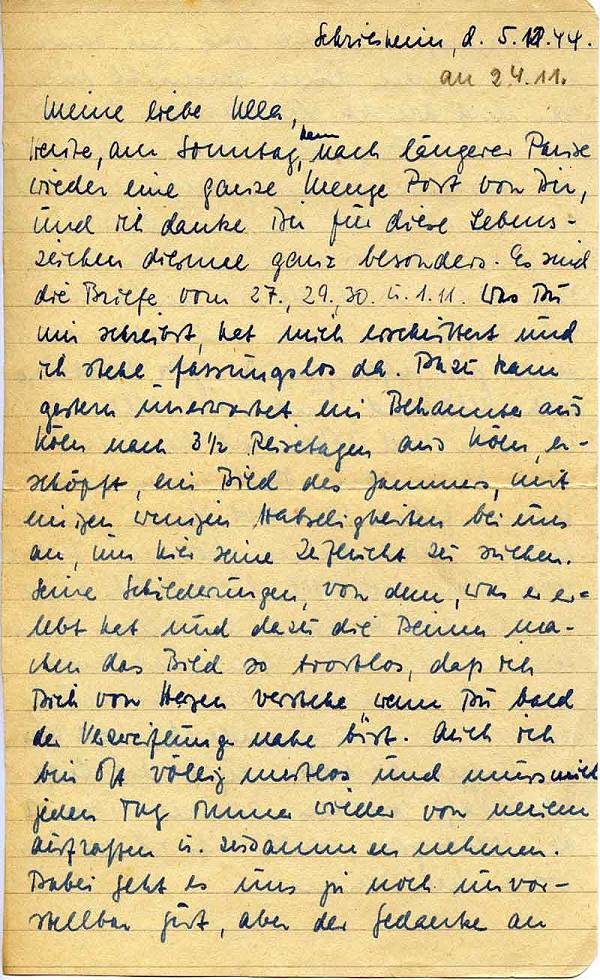 Schriesheim, d. 5.12.44.
an 24.11.
Meine liebe Ulla,
heute, am Sonntag, kam nach längerer Pause
wieder eine ganze Menge Post von Dir,
und ich danke Dir für diese Lebens-
zeichen diesmal ganz besonders. Es sind
die Briefe vom 27., 29., 30. u. 1.11. Was Du
mir schreibst, hat mich erschüttert und
ich stehe fassungslos da. Dazu kam
gestern unerwartet ein Bekannter aus
Köln nach 3½ Reisetagen aus Köln, er-
schöpft, ein Bild des Jammers, mit
einigen wenigen Habseligkeiten bei uns
an, um hier seine Zuflucht zu suchen.
Seine Schilderungen, von dem, was er er-
lebt hat und dazu die Deinen ma-
chen das Bild so trostlos, daß ich
Dich von Herzen verstehe, wenn Du bald
der Verzweiflung nahe bist. Auch ich
bin oft völlig mutlos und muss mich
jeden Tag immer wieder von neuem
aufraffen u. zusammennehmen.
Dabei geht es uns ja noch unvor-
stellbar gut, aber der Gedanke an